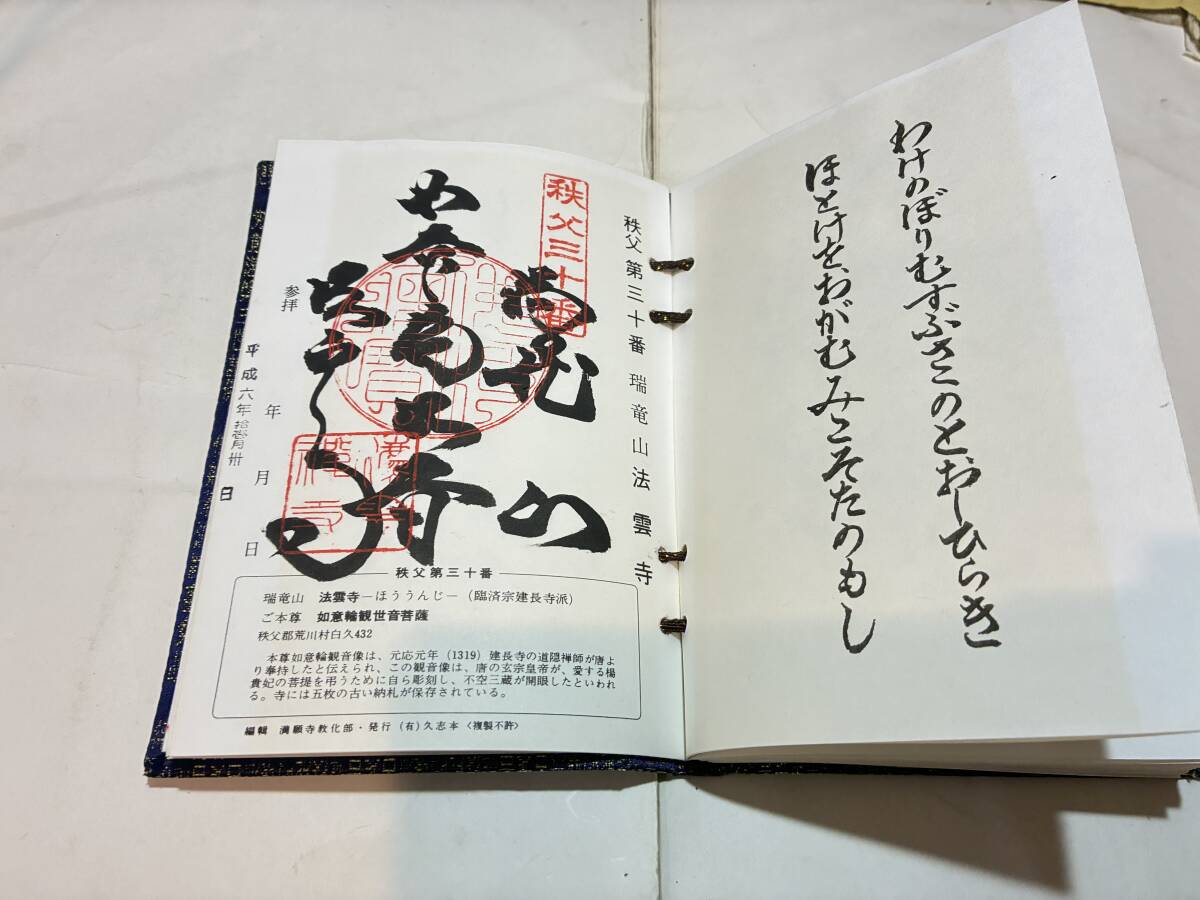 わけのぼりむすぶささのとおしひらき
ほとけをおがむみこそたのもし
秩父第三十番 瑞竜山法雲寺
秩父三十番
山
寺
参拝 年 月 日
平成六年拾壱月卅日
秩父第三十番
瑞竜山 法雲寺―ほううんじ―(臨済宗建長寺派)
ご本尊 如意輪観世音菩薩
秩父郡荒川村白久432
本尊如意輪観音像は、元応元年(1319)建長寺の道隠禅師が唐よ
り奉持したと伝えられ、この観音像は、唐の玄宗皇帝が、愛する楊
貴妃の菩提を弔うために自ら彫刻し、不空三蔵が開眼したといわれ
る。寺には五枚の古い納札が保存されている。
編輯 満願寺教化部・発行 (有)久志本〈複製不許〉